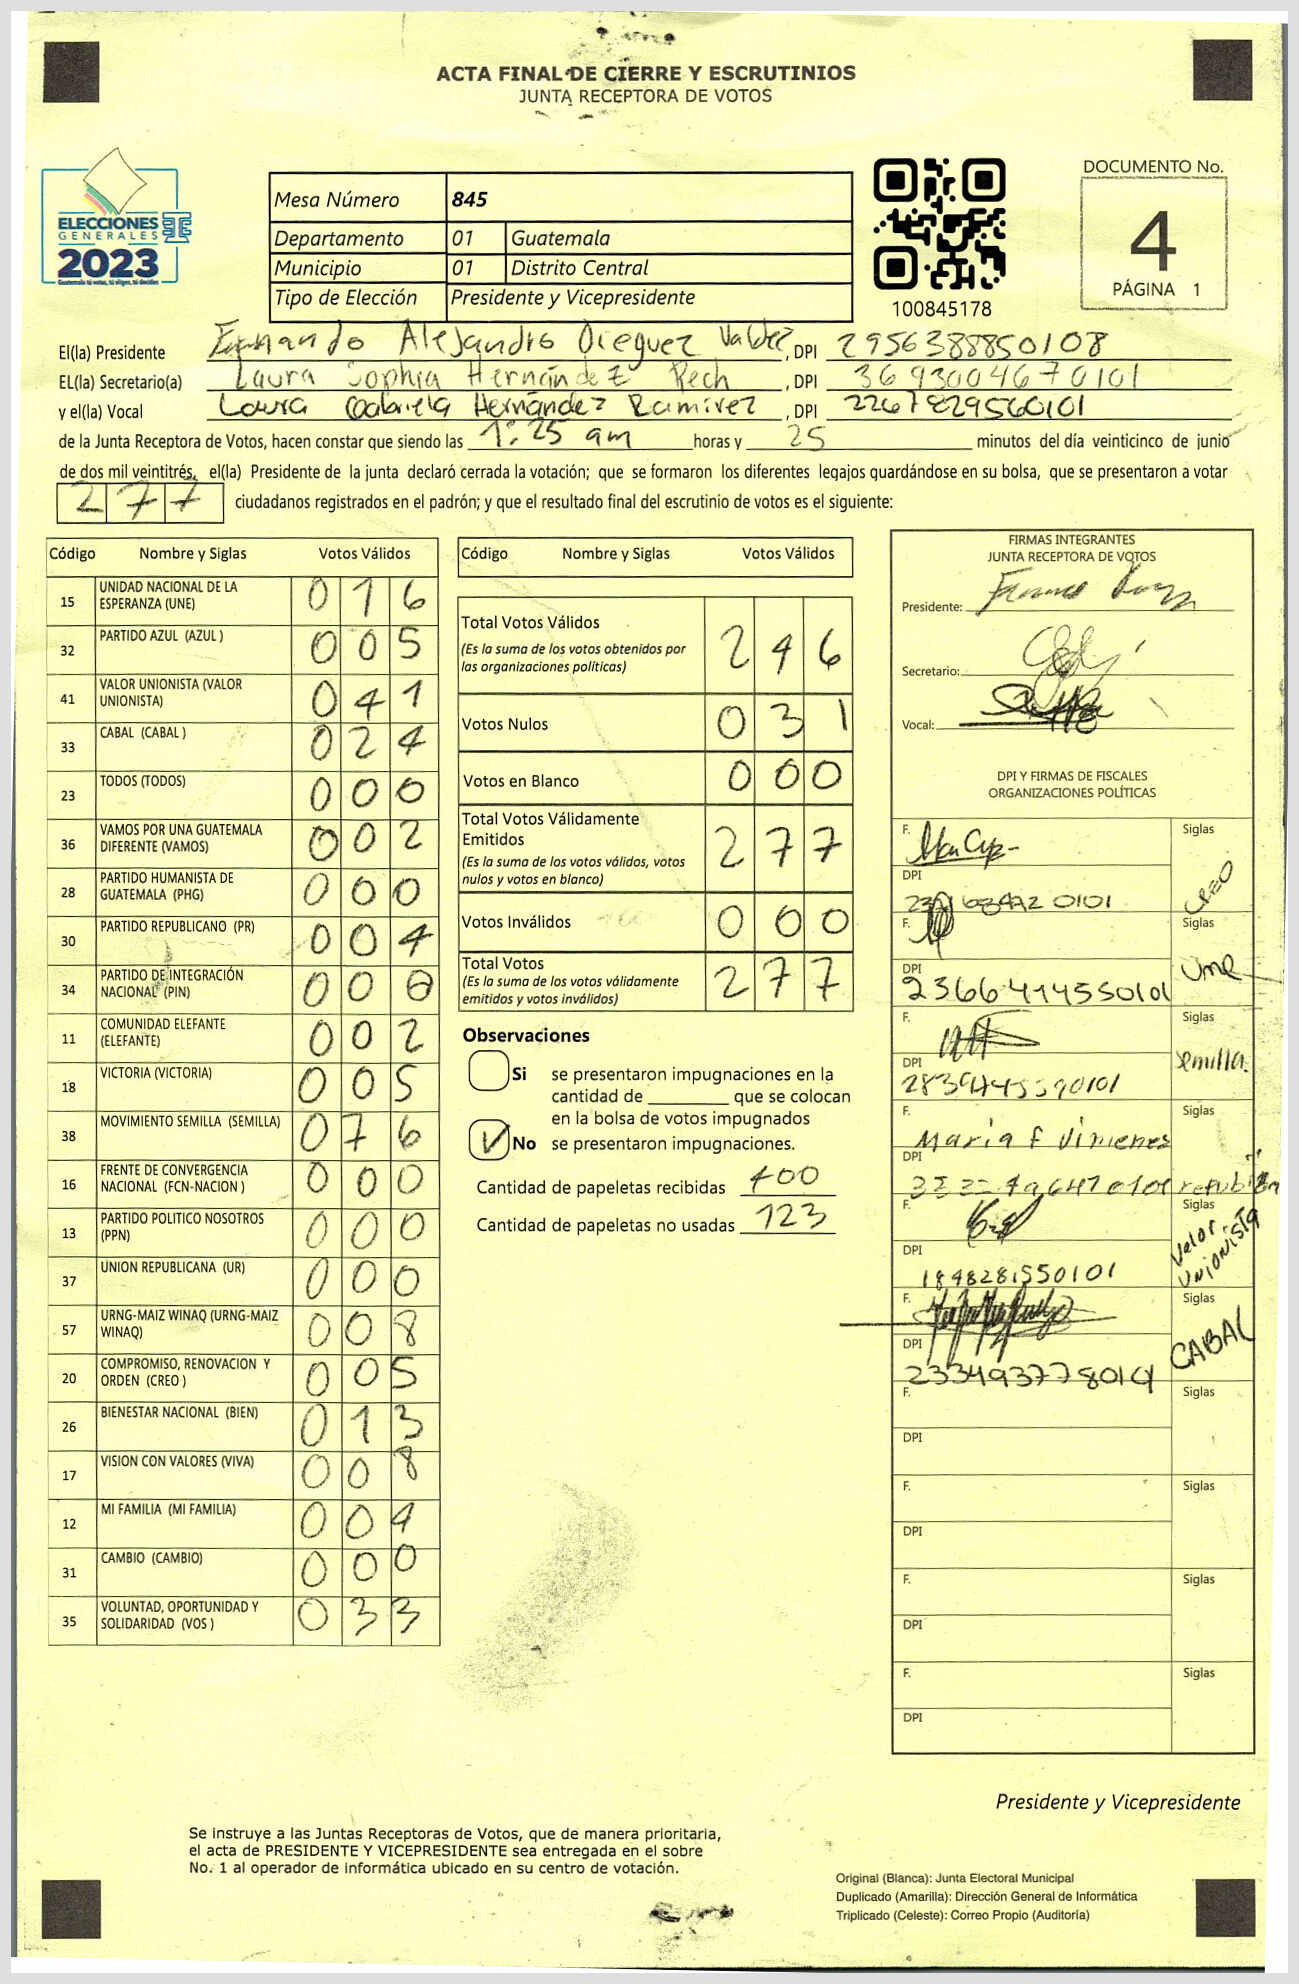 ACTA FINAL DE CIERRE Y ESCRUTINIOS
JUNTA RECEPTORA DE VOTOS
ELECCIONES
GENERALES
2023
Guatemala tú votas, tú eliges, tú decides
Mesa Número 845
Departamento 01 Guatemala
Municipio 01 Distrito Central
Tipo de Elección Presidente y Vicepresidente
100845178
DOCUMENTO No.
4
PÁGINA 1
El(la) Presidente Fernando Alejandro Dieguez Valdez, DPI 2956388850108
EL(la) Secretario(a) Laura Sophia Hernández Pech, DPI 3693004670101
y el(la) Vocal Laura Gabriela Hernández Ramirez, DPI 2267829560101
de la Junta Receptora de Votos, hacen constar que siendo las 1:25 am horas y 25 minutos del día veinticinco de junio
de dos mil veintitrés, el(la) Presidente de la junta declaró cerrada la votación; que se formaron los diferentes legajos guardándose en su bolsa, que se presentaron a votar
277 ciudadanos registrados en el padrón; y que el resultado final del escrutinio de votos es el siguiente:
Código Nombre y Siglas Votos Válidos
15 UNIDAD NACIONAL DE LA ESPERANZA (UNE) 016
32 PARTIDO AZUL (AZUL ) 005
41 VALOR UNIONISTA (VALOR UNIONISTA) 041
33 CABAL (CABAL ) 024
23 TODOS (TODOS) 000
36 VAMOS POR UNA GUATEMALA DIFERENTE (VAMOS) 002
28 PARTIDO HUMANISTA DE GUATEMALA (PHG) 000
30 PARTIDO REPUBLICANO (PR) 004
34 PARTIDO DE INTEGRACIÓN NACIONAL (PIN) 000
11 COMUNIDAD ELEFANTE (ELEFANTE) 002
18 VICTORIA (VICTORIA) 005
38 MOVIMIENTO SEMILLA (SEMILLA) 076
16 FRENTE DE CONVERGENCIA NACIONAL (FCN-NACION ) 000
13 PARTIDO POLITICO NOSOTROS (PPN) 000
37 UNION REPUBLICANA (UR) 000
57 URNG-MAIZ WINAQ (URNG-MAIZ WINAQ) 008
20 COMPROMISO, RENOVACION Y ORDEN (CREO ) 005
26 BIENESTAR NACIONAL (BIEN) 013
17 VISION CON VALORES (VIVA) 008
12 MI FAMILIA (MI FAMILIA) 004
31 CAMBIO (CAMBIO) 000
35 VOLUNTAD, OPORTUNIDAD Y SOLIDARIDAD (VOS ) 033
Código Nombre y Siglas Votos Válidos
Total Votos Válidos 246
(Es la suma de los votos obtenidos por
las organizaciones políticas)
Votos Nulos 031
Votos en Blanco 000
Total Votos Válidamente
Emitidos 277
(Es la suma de los votos válidos, votos
nulos y votos en blanco)
Votos Inválidos 000
Total Votos 277
(Es la suma de los votos válidamente
emitidos y votos inválidos)
Observaciones
Si se presentaron impugnaciones en la
cantidad de ________ que se colocan
en la bolsa de votos impugnados
No se presentaron impugnaciones.
Cantidad de papeletas recibidas 400
Cantidad de papeletas no usadas 123
FIRMAS INTEGRANTES
JUNTA RECEPTORA DE VOTOS
Presidente:
Secretario:
Vocal:
DPI Y FIRMAS DE FISCALES
ORGANIZACIONES POLÍTICAS
F. Siglas
DPI CREO
F. Siglas
DPI UNE
2366414550101
F. Siglas
DPI Semilla.
F. Maria F Jimenez Siglas
DPI
F. Siglas
DPI Valor Unionista
1848281550101
F. Siglas
DPI CABAL
F. Siglas
DPI
F. Siglas
DPI
F. Siglas
DPI
F. Siglas
DPI
Presidente y Vicepresidente
Se instruye a las Juntas Receptoras de Votos, que de manera prioritaria,
el acta de PRESIDENTE Y VICEPRESIDENTE sea entregada en el sobre
No. 1 al operador de informática ubicado en su centro de votación.
Original (Blanca): Junta Electoral Municipal
Duplicado (Amarilla): Dirección General de Informática
Triplicado (Celeste): Correo Propio (Auditoría)